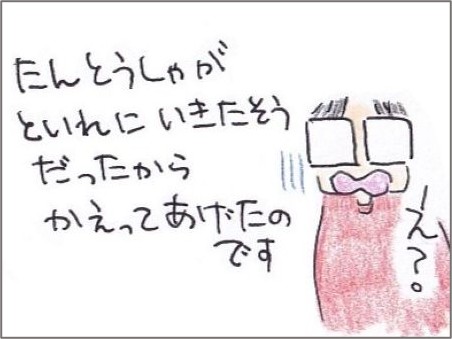 たんとうしゃが
といれに いきたそう
だったから
かえってあげたの
です
―え?。